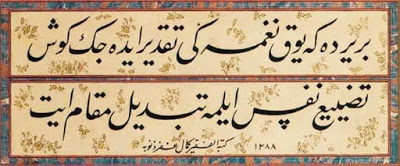 بر یرده که یوق نغمه کی تقدیر ایده جک کوش
تضییع نفس ایلمه تبدیل مقام ایت
۱۲۸۸ کتبه الفقیر کمال غفر ذنوبه